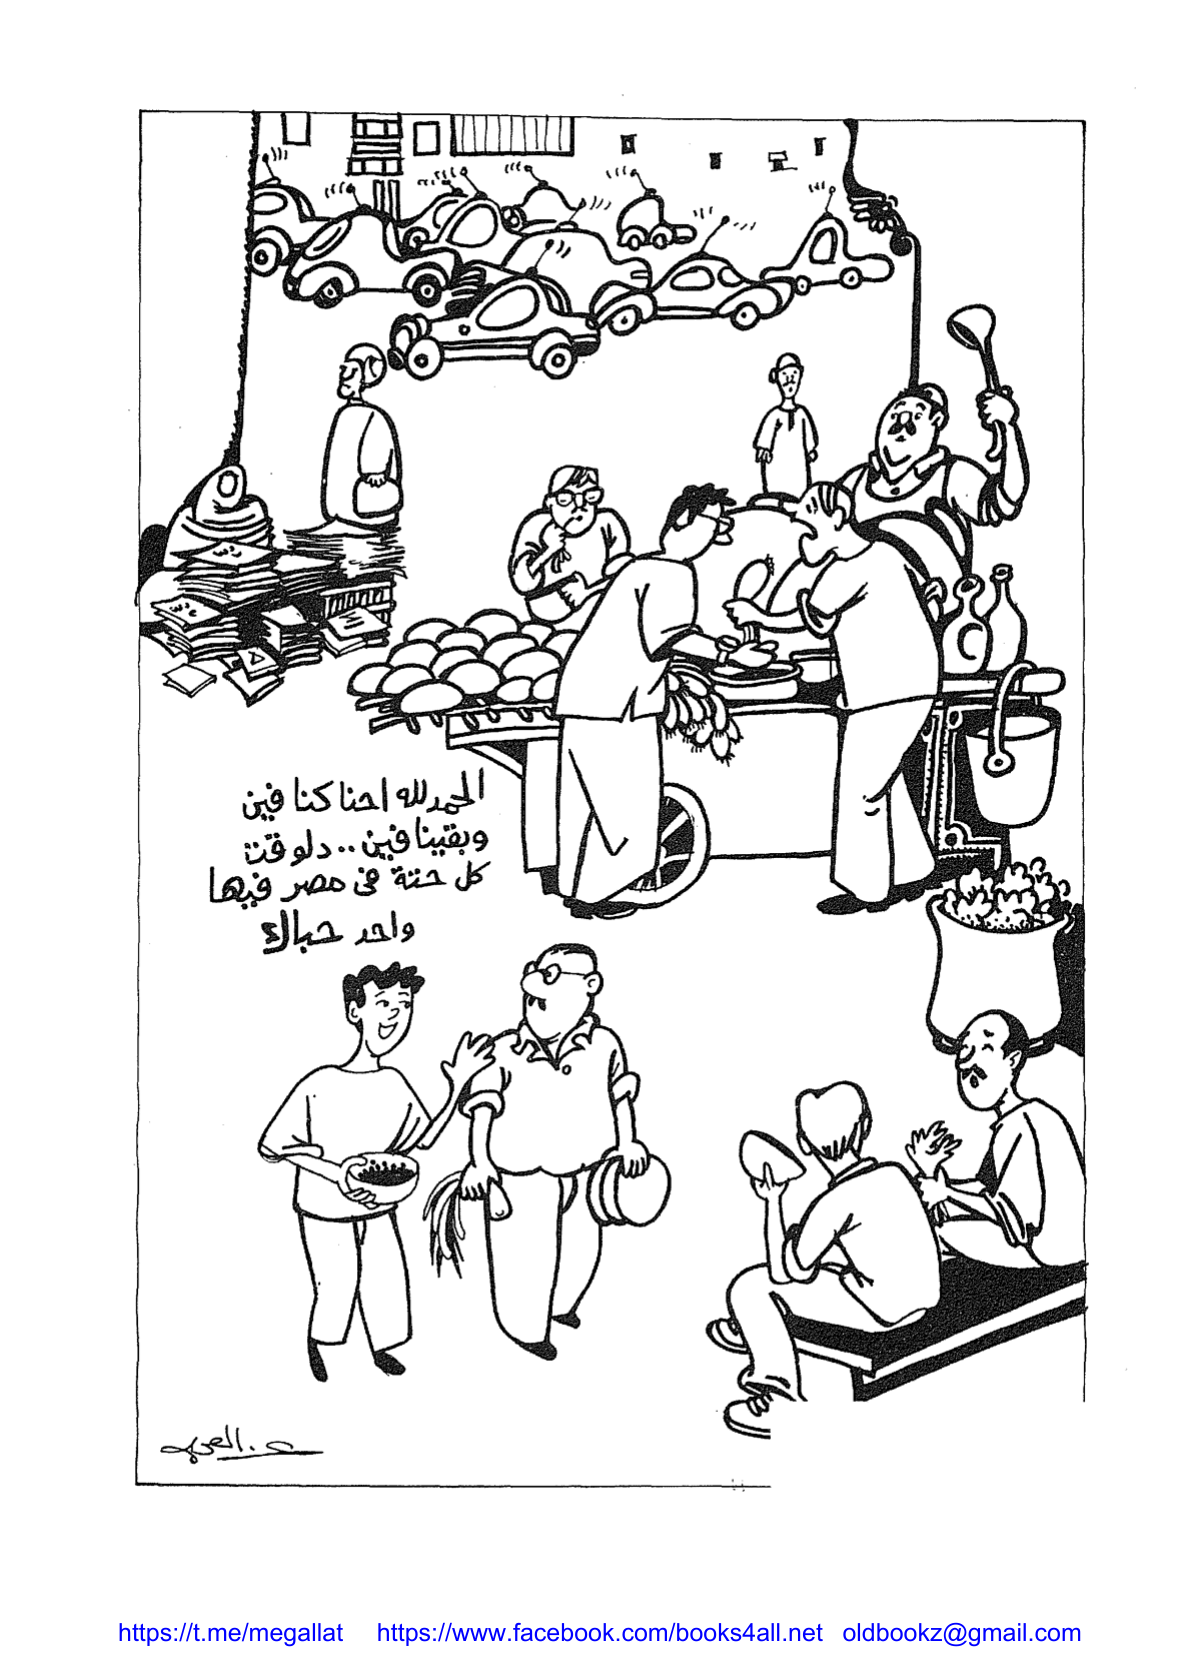 الحمدلله احنا كنا فين
وبقينا فين.. دلوقت
كل حتة فى مصر فيها
واحد حباك
https://t.me/megallat https://www.facebook.com/books4all.net oldbookz@gmail.com